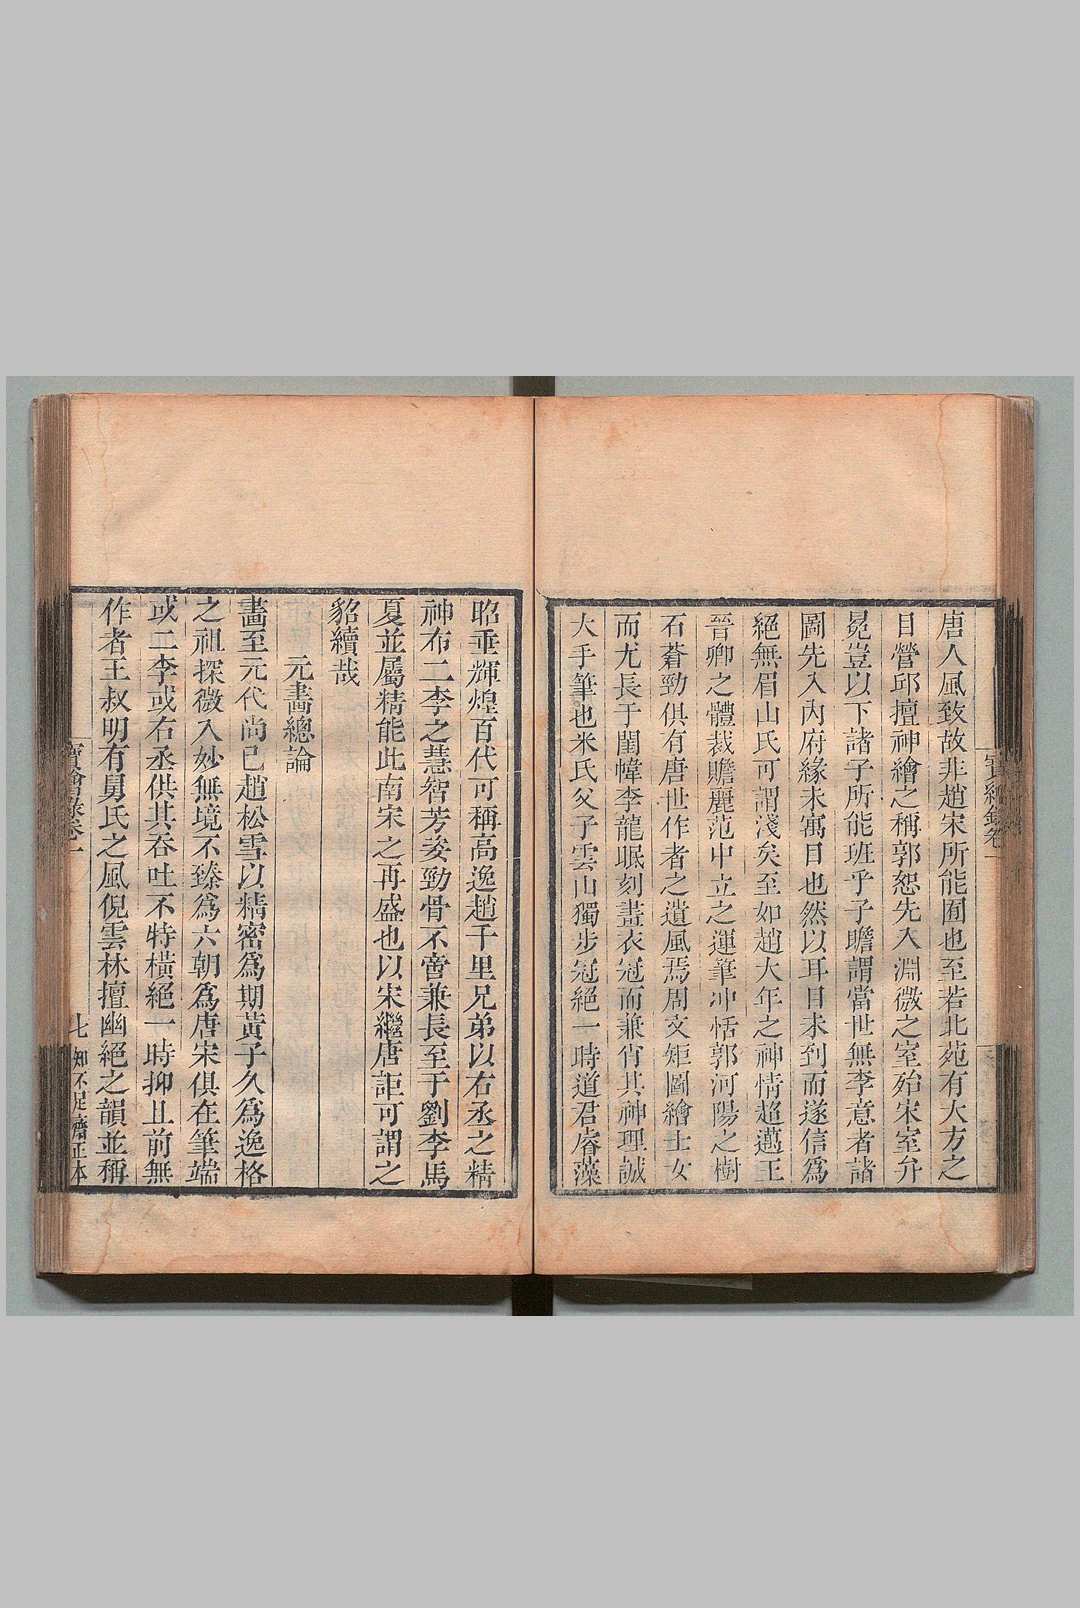 唐人風致故非趙宋所能囿也至若北苑有大方之
目營邱擅神繪之稱郭恕先入淵微之室殆宋室弁
冕豈以下諸子所能班乎子瞻謂當世無李意者諸
圖先入內府緣未寓目也然以耳目未到而遂信爲
絕無眉山氏可謂淺矣至如趙大年之神情超邁王
晉卿之體裁贍麗范中立之運筆沖恬郭河陽之樹
石蒼勁俱有唐世作者之遺風焉周文矩圖繪士女
而尤長于閨幃李龍眠刻畫衣冠而兼肖其神理誠
大手筆也米氏父子雲山獨步冠絕一時道君睿藻
昭垂輝煌百代可稱高逸趙千里兄弟以右丞之精
神布二李之慧智芳姿勁骨不啻兼長至于劉李馬
夏並屬精能此南宋之再盛也以宋繼唐詎可謂之
貂續哉
元畵總論
畵至元代尚已趙松雪以精密爲期黃子久爲逸格
之祖探微入妙無境不臻爲六朝爲唐宋俱在筆端
或二李或右丞供其吞吐不特橫絕一時抑且前無
作者王叔明有舅氏之風倪雲林擅幽絕之韻並稱
寶繪錄卷一
七
知不足齋正本